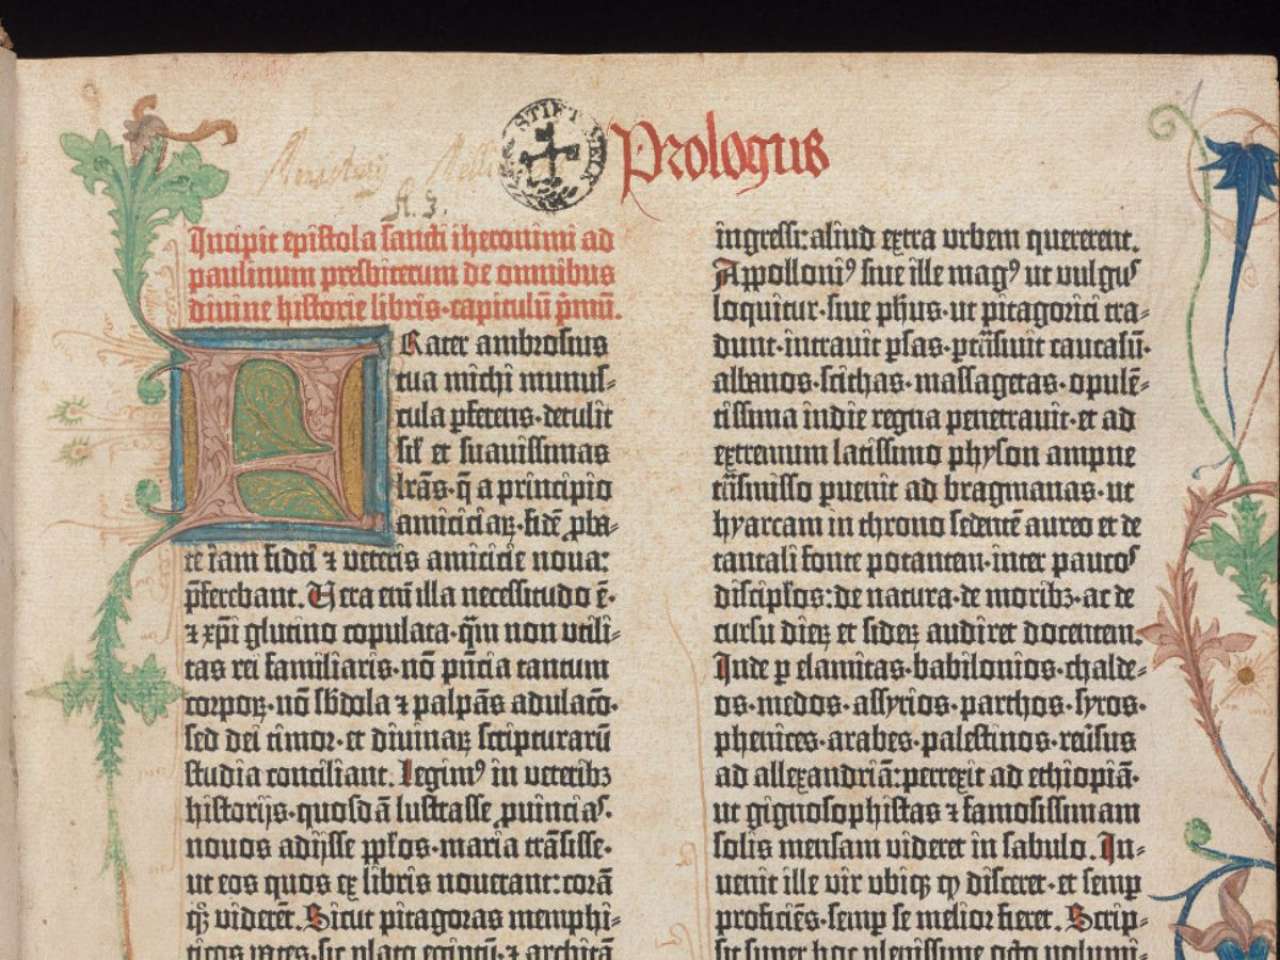 STIFT MELK
Prologus
A. 3.
Incipit epistola sancti iheronimi ad
paulinum presbiterum de omnibus
divine historie libris·capitulū p̄mū.
FRater ambrosius
tua michi munus-
cula ꝑferens·detulit
sil̄ et suavissimas
lr̄as·q̄ a principio
amiciciaꝝ·fidē ꝓba-
te iam fidei ⁊ veteris amicicie nova:
p̄ferebant. Vera em̄ illa necessitudo ē·
⁊ xp̄i glutino copulata·q̄m non utili-
tas rei familiaris·nō pn̄cia tantum
corpoꝝ·nō sb̄dola ⁊ palpās adulacō·
sed dei timor·et divinaꝝ scripturarū
studia conciliant. Legimꝰ in veteribꝫ
historijs·quosdā lustrasse ꝓvincias·
novos adijsse ppl̄os·maria trāsisse·
ut eos quos ex libris noverant: corā
qꝫ viderēt. Sicut pitagoras memphi-
ticos vates·sic plato egiptū·⁊ architā
ingressi: aliud extra urbem quererent.
Appolloniꝰ sive ille magꝰ ut vulgus
loquitur·sive ph̄us·ut pitagorici tra-
dunt·intravit ꝑsas·ptrāsivit caucasū·
albanos·scithas·massagetas·opulē-
tissima indie regna penetravit·et ad
extremum latissimo physon ampne
trāsmisso ꝑvenit ad bragmanas·ut
hyarcam in throno sedentē aureo et de
tantali fonte potantem·inter paucos
discipl̄os: de natura·de moribꝫ·ac de
cursu dieꝝ et sideꝝ audiret docentem.
Inde ꝑ elamitas·babilonios·chalde-
os·medos·assyrios·parthos·syros·
phenices·arabes·palestinos·reūsus
ad allexandriā: perrexit ad ethiopiā·
ut gignosophistas ⁊ famosissimam
solis mensam videret in sabulo. In-
venit ille vir ubiqꝫ ꝙ disceret·et semꝑ
proficiēs·semꝑ se melior fieret. Scrip-
sit super hoc plenissime octo volumi-